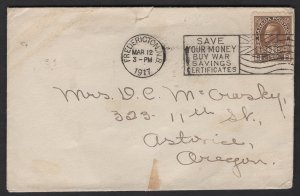 FREDERICTON, N.B.
MAR 12
3 - PM
1917
SAVE
YOUR MONEY
BUY WAR
SAVINGS
CERTIFICATES
Mrs. D. C. McCrosky,
323 - 11th St.,
Astoria,
Oregon.